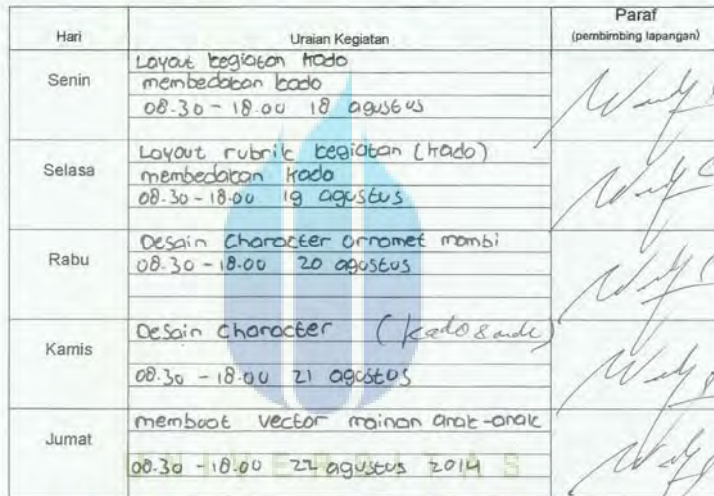 Hari Uraian Kegiatan Paraf
(pembimbing lapangan)
Senin
Layout kegiatan kado
membedakan kado
08.30 - 18.00 18 agustus
Selasa
Layout rubrik kegiatan (kado)
membedakan kado
08.30 - 18.00 19 agustus
Rabu
Desain Character ornamet mombi
08.30 - 18.00 20 agustus
Kamis
Desain character (kado &
08.30 - 18.00 21 agustus
Jumat
membuat vector mainan anak-anak
08.30 - 18.00 22 agustus 2014